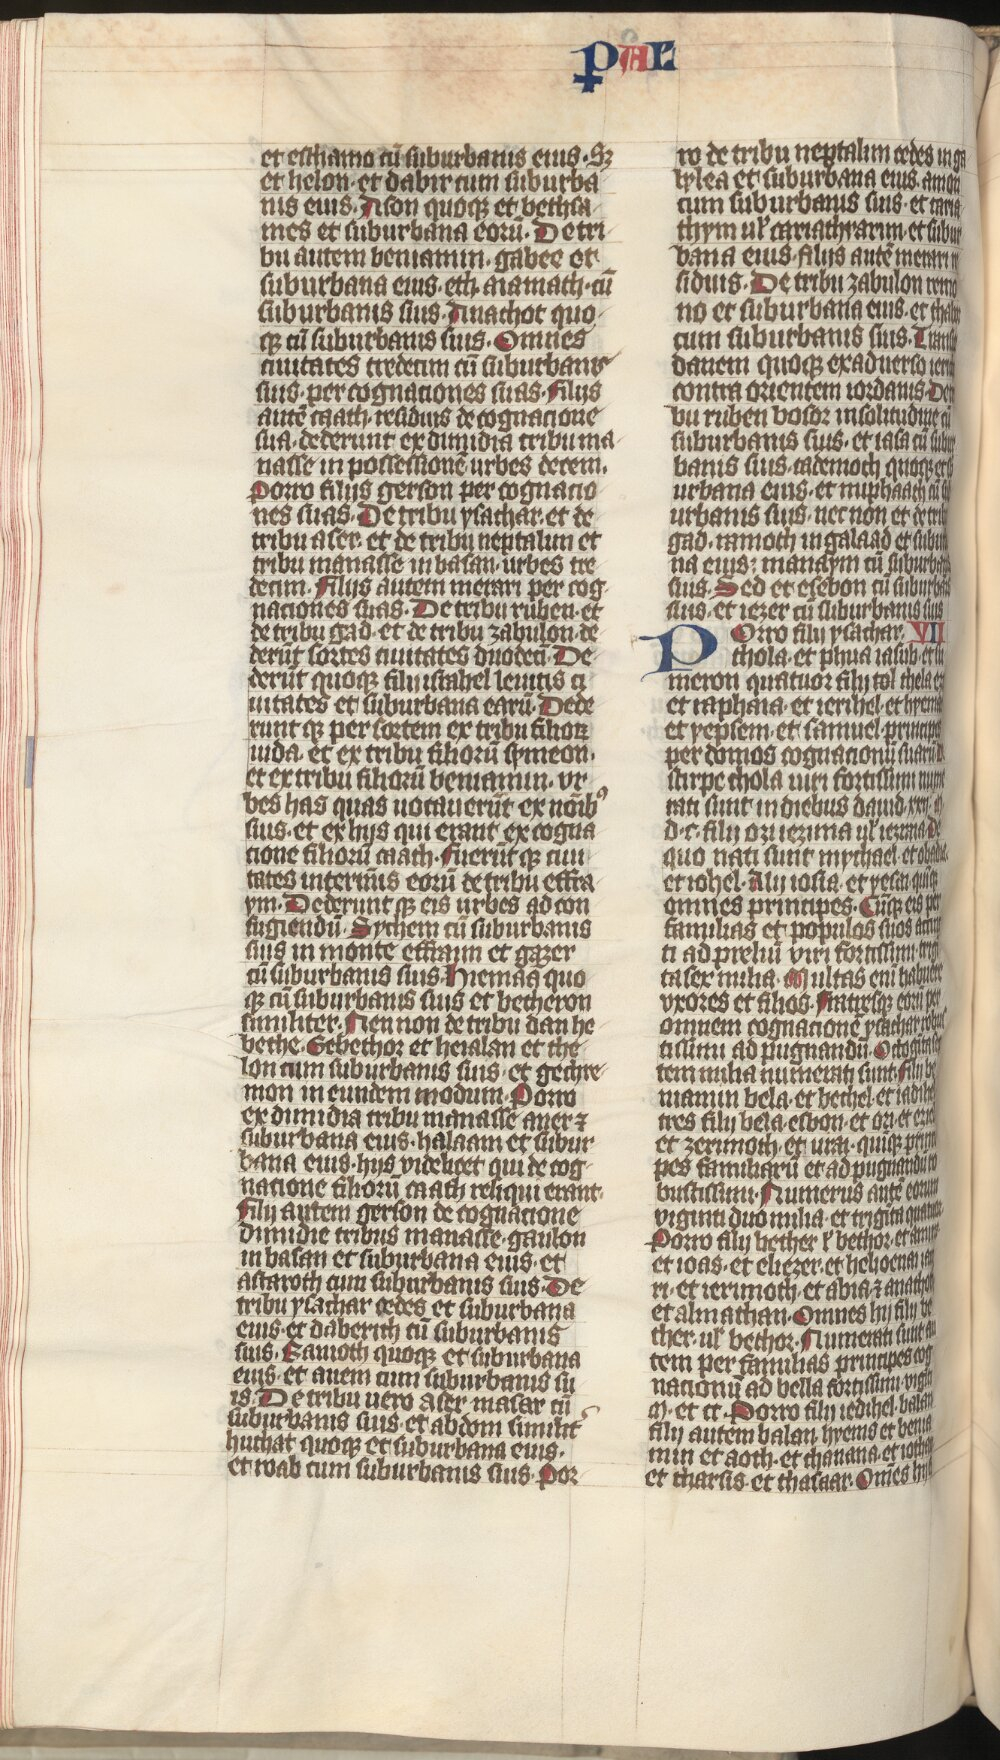 PAL
et esthamo cū suburbanis eius. Sʒ
et helon. et dabir cum suburba
nis eius. Ason quoqꝫ et bethsa
mes et suburbana eorū. De tri
bu autem beniamin. gabee et
suburbana eius. eth aiamath. cū
suburbanis suis. Anachot quo
qꝫ cū suburbanis suis. Omnes
ciuitates tredecim cū suburbanis
suis. per cognaciones suas. Filijs
autē caath. residuis de cognacione
sua. dederunt ex dimidia tribu ma
nasse in possessionē urbes decem.
Porro filijs gerson per cognacio
nes suas. De tribu ysachar. et de
tribu aser. et de tribu neptalim et
tribu manasse in basan. urbes tre
decim. Filijs autem merari per cog
naciones suas. De tribu ruben. et
de tribu gad. et de tribu zabulon. de
derūt sortes ciuitates duodecī. De
derūt quoqꝫ filij israhel leuitis ci
uitates et suburbana earū. Dede
runt qꝫ per sortem ex tribu filioꝝ
iuda. et ex tribu filiorū symeon.
et ex tribu filiorū beniamin. vr
bes has quas uocauerūt ex noībꝯ
suis. et ex hijs qui erant ex cogna
cione filiorū caath. Fuerūt qꝫ ciui
tates in terminis eorū de tribu effra
ym. Dederunt qꝫ eis urbes ad con
fugiendū. Sychem cū suburbanis
suis in monte effraim et gazer
cū suburbanis suis. Hiemaa quo
qꝫ cū suburbanis suis et betheron
similiter. Nen non de tribu dan he
bethe. Gebethor et heialan et the
lon cum suburbanis suis. et gechre
mon in eundem modum. Porro
ex dimidia tribu manasse aner ⁊
suburbana eius. halaam et subur
bana eius. hijs videlicet qui de cog
natione filiorū caath reliqui erant.
Filij autem gerson de cognacione
dimidie tribus manasse. gaulon
in basan et suburbana eius. et
astaroth cum suburbanis suis. De
tribu ysachar cedes et suburbana
eius. et daberith cū suburbanis
suis. Eamoth quoqꝫ et suburbana
eius. et anem cum suburbanis su
is. De tribu uero aser masar cū
suburbanis suis. et abdom similit
huchat quoqꝫ et suburbana eius.
et roab cum suburbanis suis. Por
ro de tribu neptalim cedes in ga
lylea et suburbana eius. amon
cum suburbanis suis. et caria
thym ul cariathyarim. et subur
bana eius. filijs autē merari re
siduis. De tribu zabulon remo
no et suburbana eius. et thabor
cum suburbanis suis. Trans
danem quoqꝫ ex aduerso ieri
contra orientem iordanis. De tri
bu ruben bosor in solitudine cū
suburbanis suis. et iasa cū subur
banis suis. cademoch quoqꝫ et
urbana eius. et miphaath cū sub
urbanis suis. nec non et de tribu
gad. ramoth in galaad et subur
na eius. manaym cū suburbanis
suis. Sed et esebon cū suburbanis
suis. et iezer cū suburbanis suis
Porro filij ysachar. VII
thola. et phua iasub. et si
meron quatuor filij tol thela oz
et raphaia. et ierihel. et hyemai
et yepsem. et samuel. principes
per domos cognacionū suarū. de
stirpe thola uiri fortissimi nume
rati sunt in diebus dauid. xxij. m
d. c. filij ozi iezima ul iezrina. De
quo nati sunt mychael. et obadia.
et iohel. Alij iosia. et yesia. quīqꝫ
omnes principes. Cūqꝫ eis per
familias et populos suos accinc
ti ad preliū viri fortissimi. trigī
ta sex milia. Multas enī habuere
vxores et filios. Fratresqꝫ eorū per
omnem cognacionē ysachar robus
tissimi ad pugnandū. Octogīta sep
tem milia numerati sunt. filij be
niamin bela. et bethel. et iadihel
tres filij bela. esbon. et ori. et eziel
et zerimoth. et urai. quīqꝫ princi
pes familiarū et ad pugnandū ro
bustissimi. Numerus autē eorum
viginti duo milia. et trigīta quatuor.
Porro filij bether l bethor. et amira
et ioas. et eliezer. et helioenai. et am
ri. et ierimoth. et abia. ⁊ anathoth
et almathan. Omnes hij filij be
ther. ul bethor. Numerati sunt au
tem per familias principes cog
nacionū ad bella fortissimi. vigīti
m. et cc. Porro filij iedihel. balan
filij autem balan. hyems et benia
min et aoth. et chanana. et iothan
et tharsis. et thasaar. Omēs hij